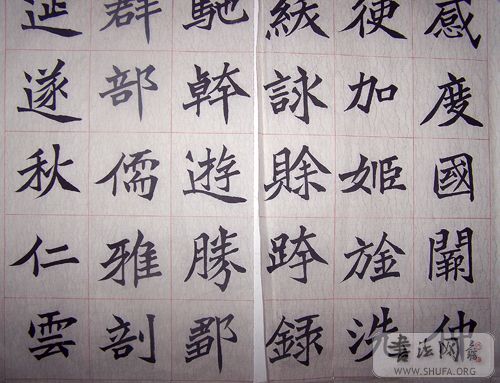 感度國仲
加姬洗
詠賒跨録
馳幹遊勝鄙
群部儒雅剖
遂秋仁雲
書法网
WWW.SHUFA.ORG